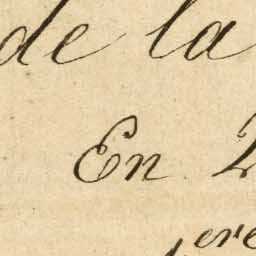 de la
En 2
ere